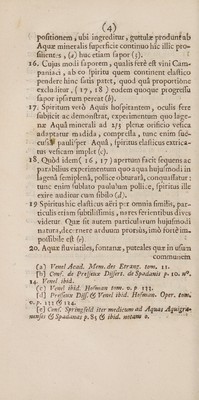 (4)
positionem, ubi ingreditur, guttulæ prodeunt ab
Aquæ mineralis superficie continuo hàc illic pro-
silientes, (a) huc etiam sapor (5).
16. Cujus modi saporem, qualis ferè est vini Cam-
paniaci, ab eo spiritu quem continent elastico
pendere hinc satis patet, quod quâ proportione
excluditur, (17, 18) eodem quoque progressu
sapor ipsorum pereat (b).
17. Spiritum verò Aquis hospitantem, oculis fere
subjicit ac demonstrat, experimentum quo lage-
næ Aquâ minerali ad 2/3 plenæ orificio vesica
adaptatur madida, compressa, tunc enim suc-
cussâ paulisper Aquâ, spiritus elasticus extrica-
tus vesicam implet (c).
18. Quòd idem (16, 17) apertum facit sequens ac
parabilius experimentum quo aqua hujusmodi in
lagenâ semiplenâ, pollice obturatâ, conquassatur:
tunc enim sublato paululum pollice, spiritus ille
exire auditur cum sibilo (d).
19 Spiritus hic elasticus aëri per omnia similis, par-
ticulis etiam subtilissimis, nares ferientibus dives
videtur. Quæ sit autem particularum hujusmodi
natura, decernere arduum prorsùs, imò fortè im-
possibile est (e)
20. Aquæ fluviatiles, fontanæ, puteales quæ in usum
communem
(a) Venel Acad. Mem. des Etrang. tom. 11.
(b) Conf. de Presseux Dissert. de Spadanis p. 10. n°.
14. Venel ibid.
(c) Venel ibid. Hofman tom. v. p. 133.
(d) Presseux Diss. & Venel ibid. Hofman. Oper. tom.
v. p. 133 & 114.
(e) Conf. Springsfeld iter medicum ad Aquas Aquisgra-
nensis & Spadanas p. 85 & ibid. notam o.